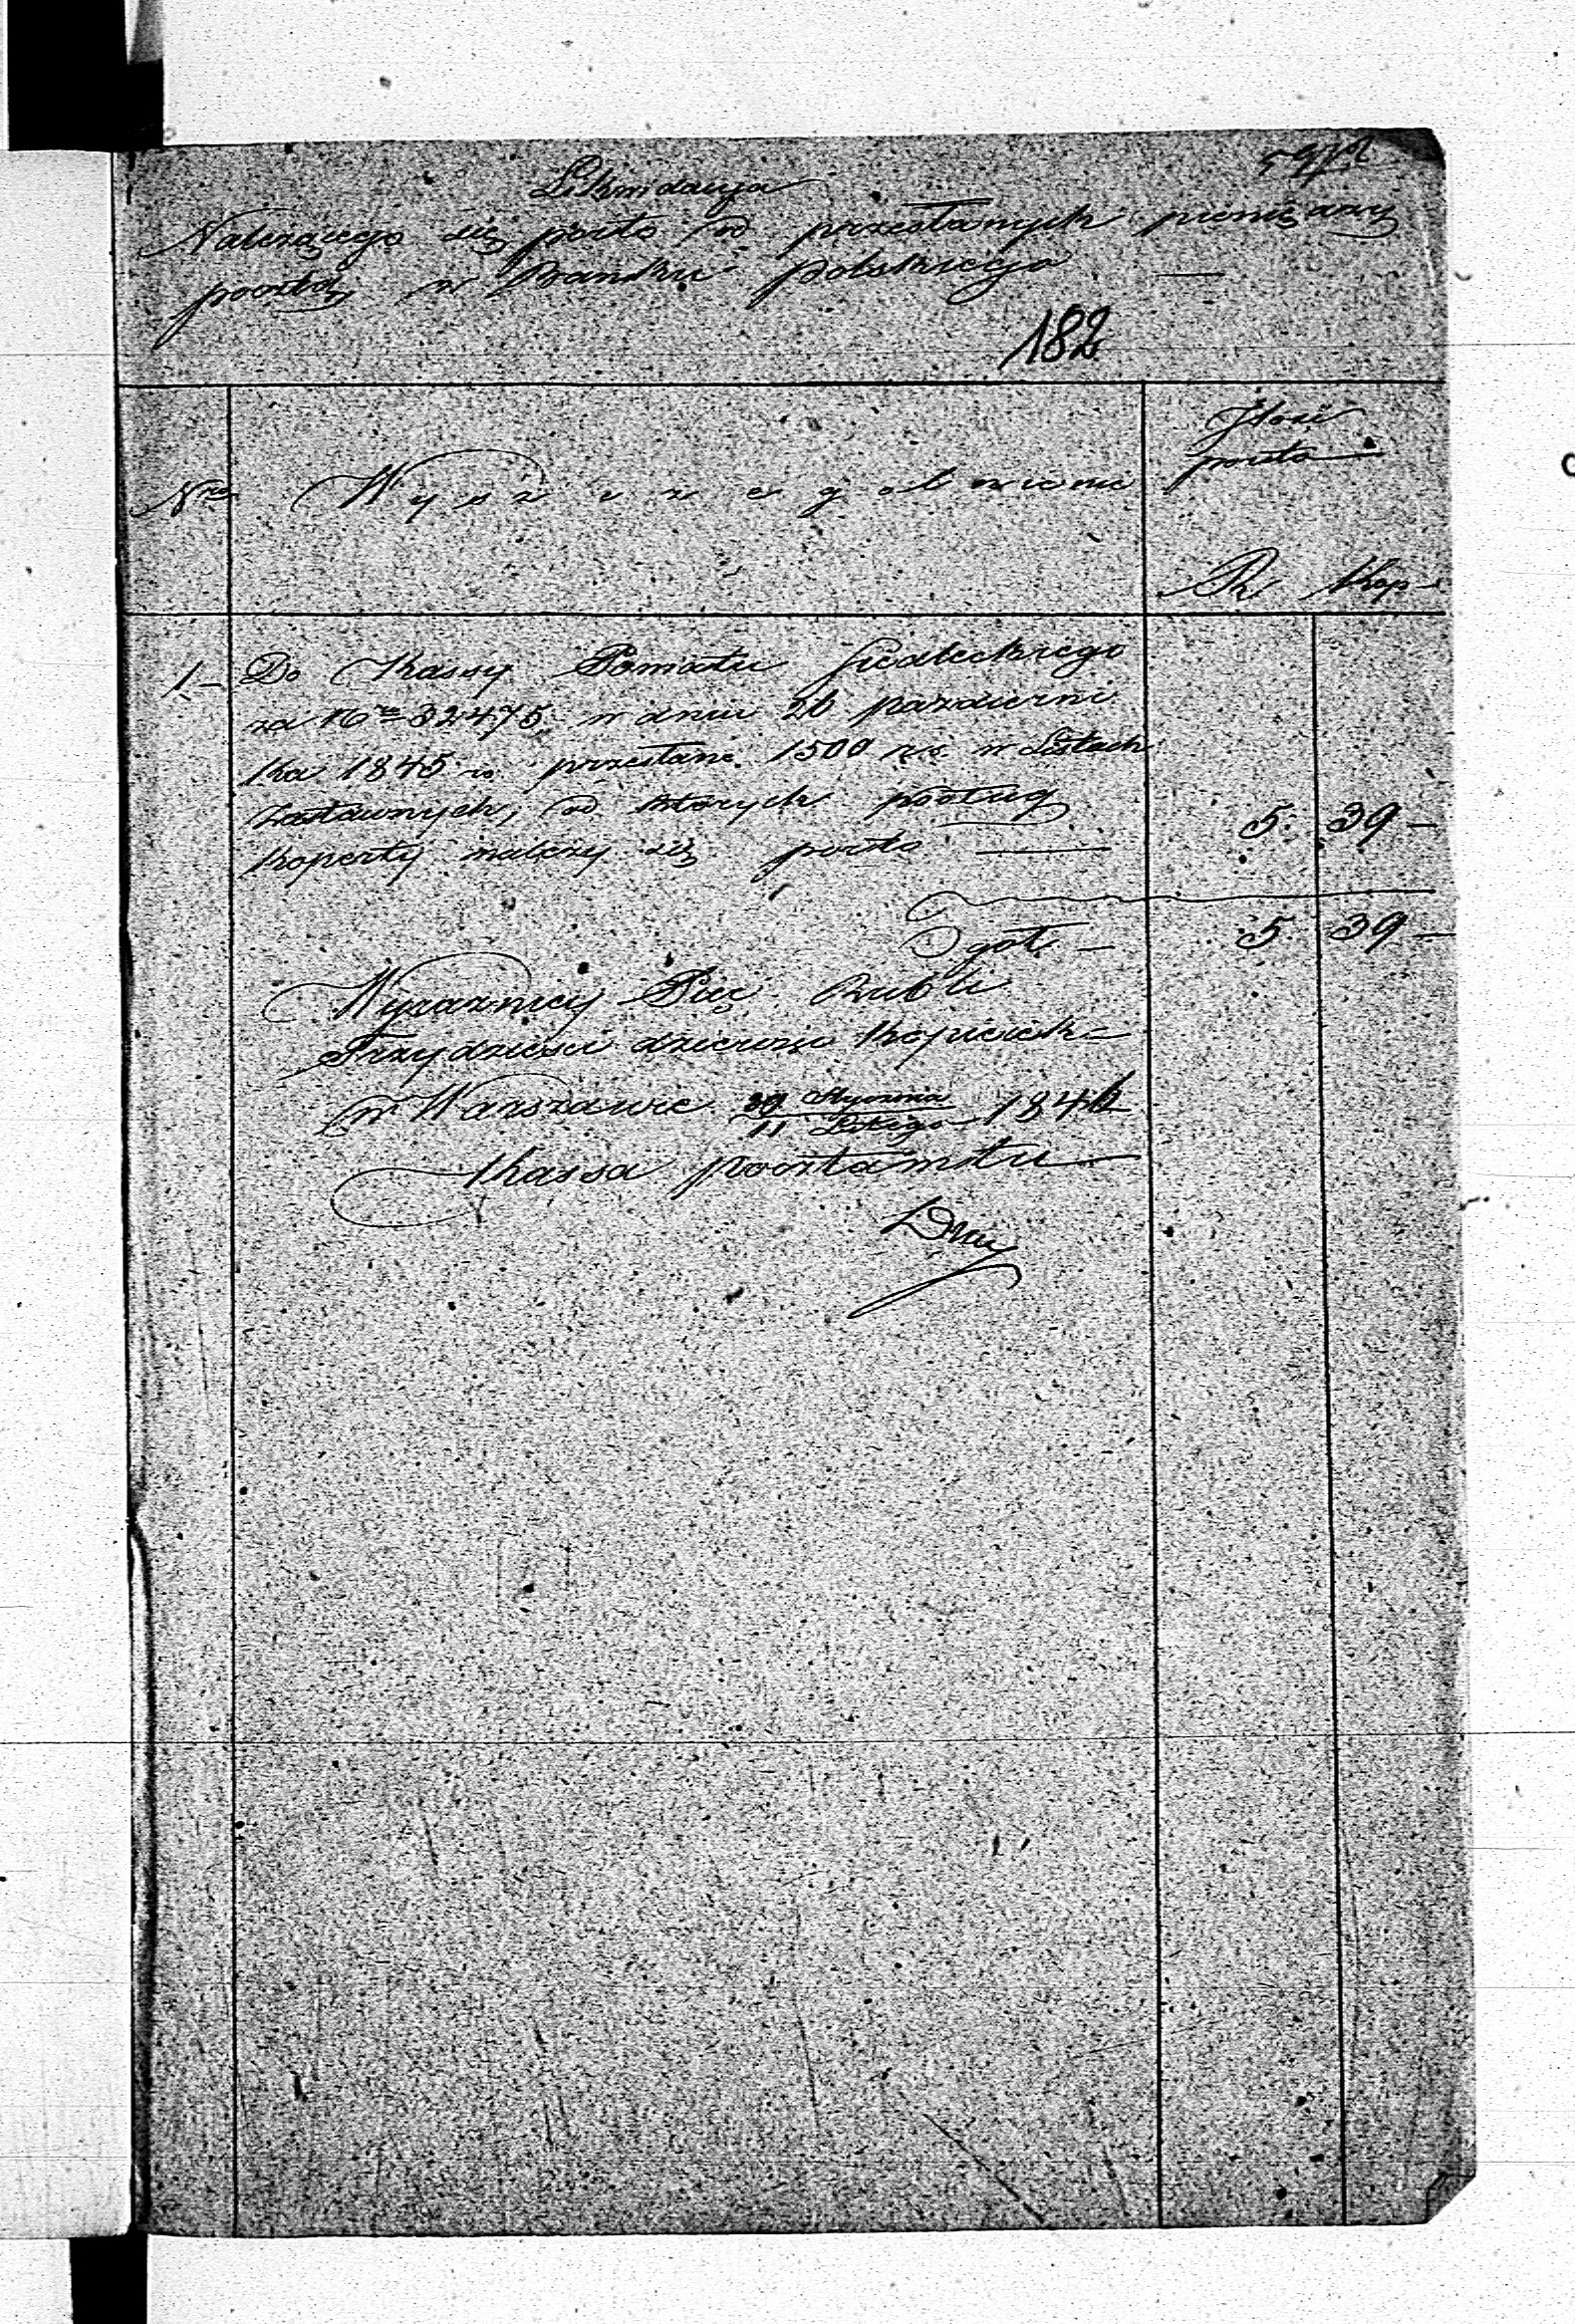 Likwidacya
Należącego się porto od przesłanych pieniązy
pocztą z Banku Polskiego —
182
Nro Wyszczegolnienie Ilość
porta
Rs Kop
1 – Do Kassy Powiatu Siedleckiego
za Nro 32475 w dniu 26 paźdźierni
ka 1845 r. przesłano 1500 rs. w Listach
zastawnych, od których podług
koperty należy się porto — 5. 39 –
Ogół – 5. 39 –
Wyraźniej Pięć Rubli
Trzydzieści dziewięć kopiejek –
w Warszawie 30 Stycznia 1846
11 Lutego
Kassa pocztamtu